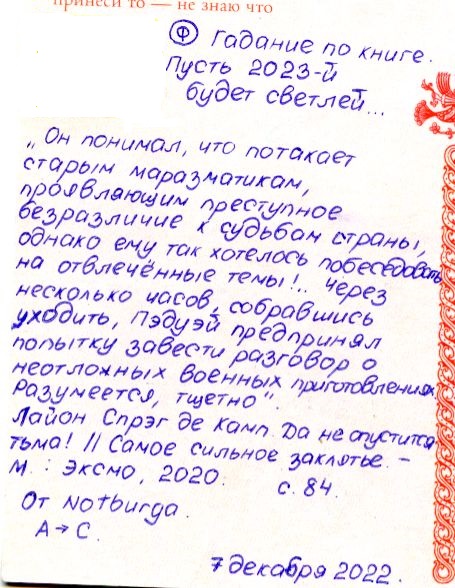 принеси то — не знаю что
Ⓕ Гадание по книге.
Пусть 2023-й
будет светлей...
„Он понимал, что потакает
старым маразматикам,
проявляющим преступное
безразличие к судьбам страны,
однако ему так хотелось побеседовать
на отвлечённые темы!.. Через
несколько часов, собравшись
уходить, Пэдуэй предпринял
попытку завести разговор о
неотложных военных приготовлениях,
разумеется, тщетно".
Лайон Спрэг де Камп. Да не опустится
тьма! // Самое сильное заклятье. –
М.: Эксмо, 2020. с. 84.
От Notburga.
А → С.
7 декабря 2022.